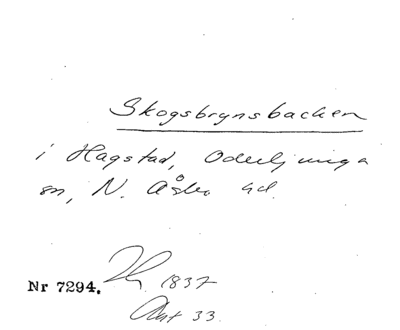 Skogsbrynsbacken
i Hagstad, Oderljunga
sn, N. Åsbo hd.
Nr 7294. 1837
Akt 33.